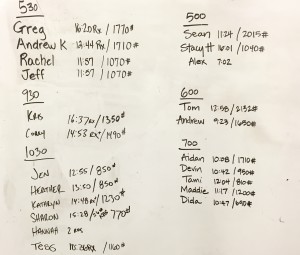 530
Greg 16:20Rx / 1770#
Andrew K 12:44 Rx / 1710#
Rachel 11:57 / 1070#
Jeff 11:57 / 1070#
930
Kris 16:37Rx / 1350#
Corey 14:53 Rx / 1490#
1030
Jen 12:55 / 850#
Heather 13:50 / 850#
Kathryn 14:48Rx / 1230#
Sharon 15:28 / 770#
Hannah
Tess / 1160#
500
Sean 11:24 / 2015#
Stacy H 16:01 / 1040#
Alex 7:02
600
Tom 12:58 / 2132#
Andrew 9:23 / 1650#
700
Aidan 10:08 / 1710#
Devin 10:42 / 950#
Tami 12:04 / 810#
Maddie 11:17 / 1200#
Dida 10:47 / 690#